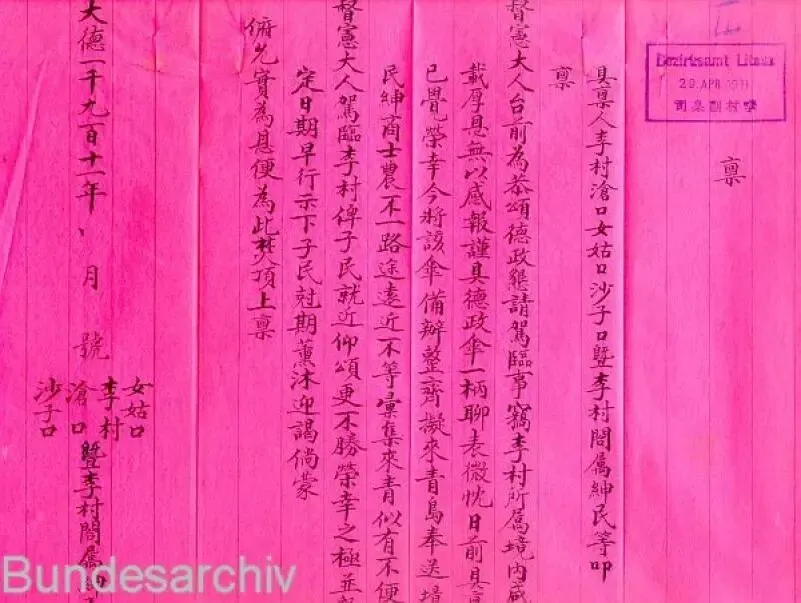 Bezirksamt Litsun
29. APR. 1911
稟
具稟人李村滄口女姑口沙子口暨李村閤属紳民等叩
稟
督憲大人台前為恭頌德政懇請駕臨事竊李村所属境内咸
載厚恩無以感報謹具德政傘一柄聊表微忱日前具
已覺榮幸今將該傘備辦整齊擬來青島奉送
民紳商士農不一路途遠近不等彙集來青似有不便
督憲大人駕臨李村俾子民就近仰頌更不勝榮幸之極並
定日期早行示下子民尅期薰沐迎謁倘蒙
俯允實為恩便為此焚頂上稟
大德一千九百十一年 月 號
女姑口
李村
滄口
沙子口
暨李村閤属紳
Bundesarchiv